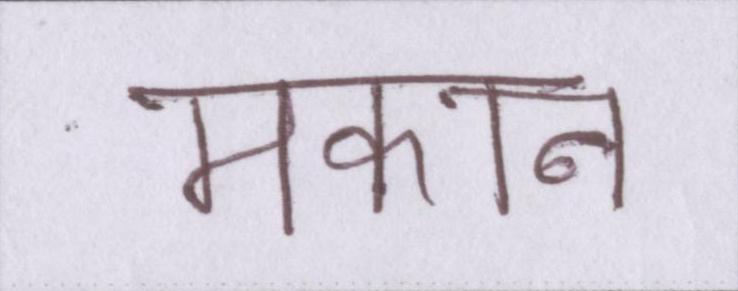 मकान